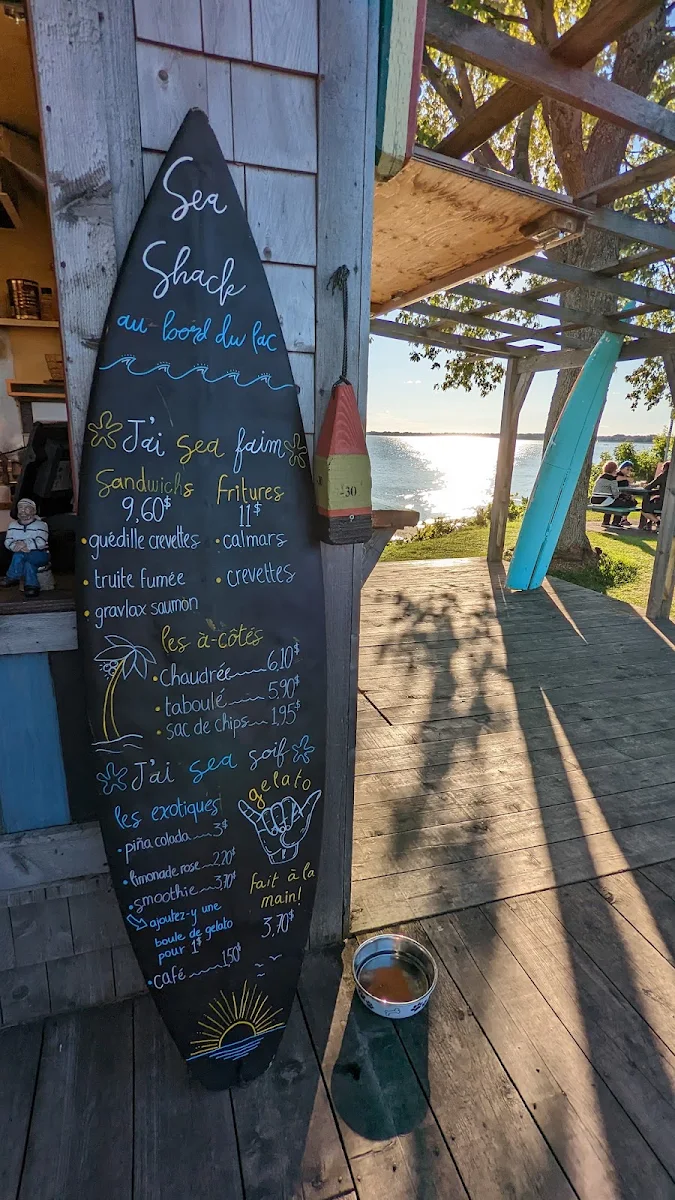 Sea
Shack
au bord du lac
J'ai sea faim
Sandwichs
9,60$
• guédille crevettes
• truite fumée
• gravlax saumon
Fritures
11$
• calmars
• crevettes
les à-côtés
• chaudrée 6,10$
• taboulé 5,90$
• sac de chips 1,95$
J'ai sea soif
les exotiques
• piña colada 3$
• limonade rose 2,20$
• smoothie 3,70$
ajoutez-y une
boule de gelato
pour 1$
• café 1,50$
gelato
fait à la
main!
3,70$
-30